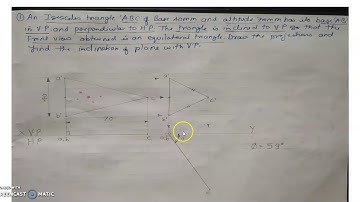 ① An Isosceles triangle ABC of Base 40mm and altitude 70mm has its base AB
in V.P and perpendicular to H.P. The triangle is inclined to V.P so that the
Front view obtained is an equilateral triangle. Draw the projections and
find the inclination of plane with V.P.
a'
a'
c'
b'
b'
X VP
HP
70
a,b
c
a,b
Y
Ø = 59°
SCREENCAST MATIC